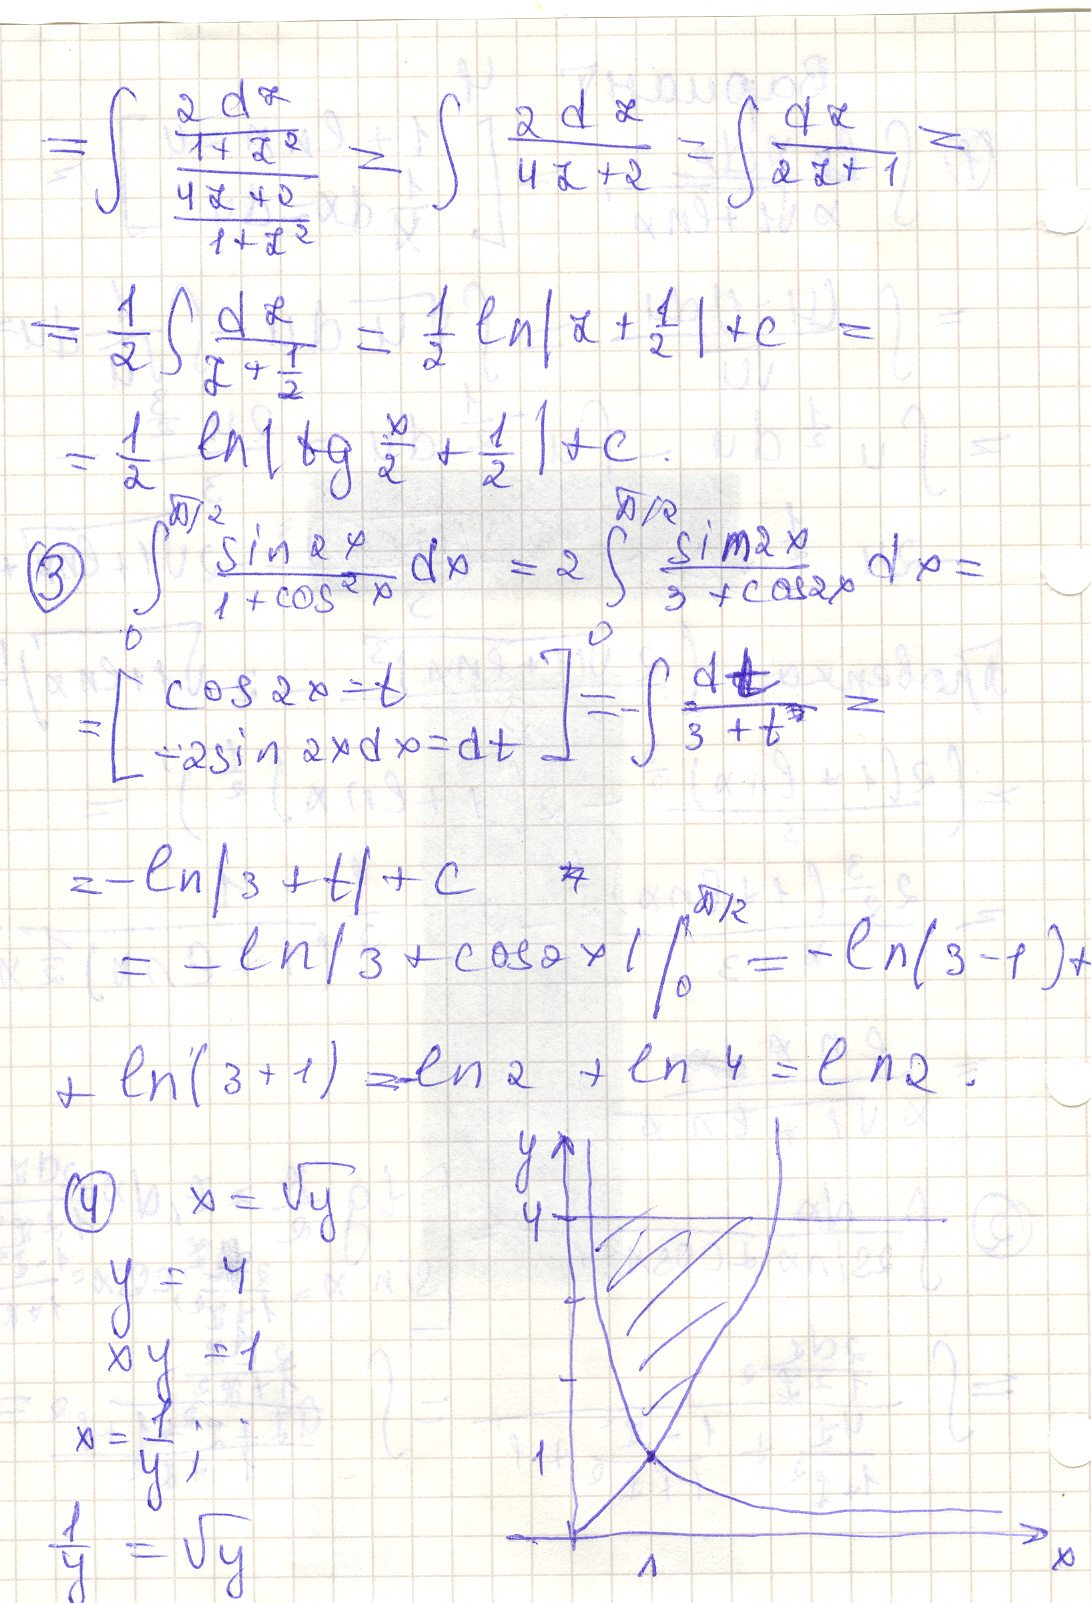 = ∫ (2dz/(1+z²))/((4z+2)/(1+z²)) = ∫ 2dz/(4z+2) = ∫ dz/(2z+1) =
= 1/2 ∫ dz/(z + 1/2) = 1/2 ln|z + 1/2| + c =
= 1/2 ln|tg x/2 + 1/2| + c.
③ ∫₀^(π/2) sin2x/(1+cos²x) dx = 2 ∫₀^(π/2) sin2x/(3+cos2x) dx =
= [cos2x = t
-2sin2xdx = dt] = -∫ dt/(3+t) =
= -ln|3+t| + c
= -ln|3+cos2x| |₀^(π/2) = -ln(3-1) +
+ ln(3+1) = -ln2 + ln4 = ln2.
④ x = √y
y = 4
xy = 1
x = 1/y;
1/y = √y
y
4
1
1
x